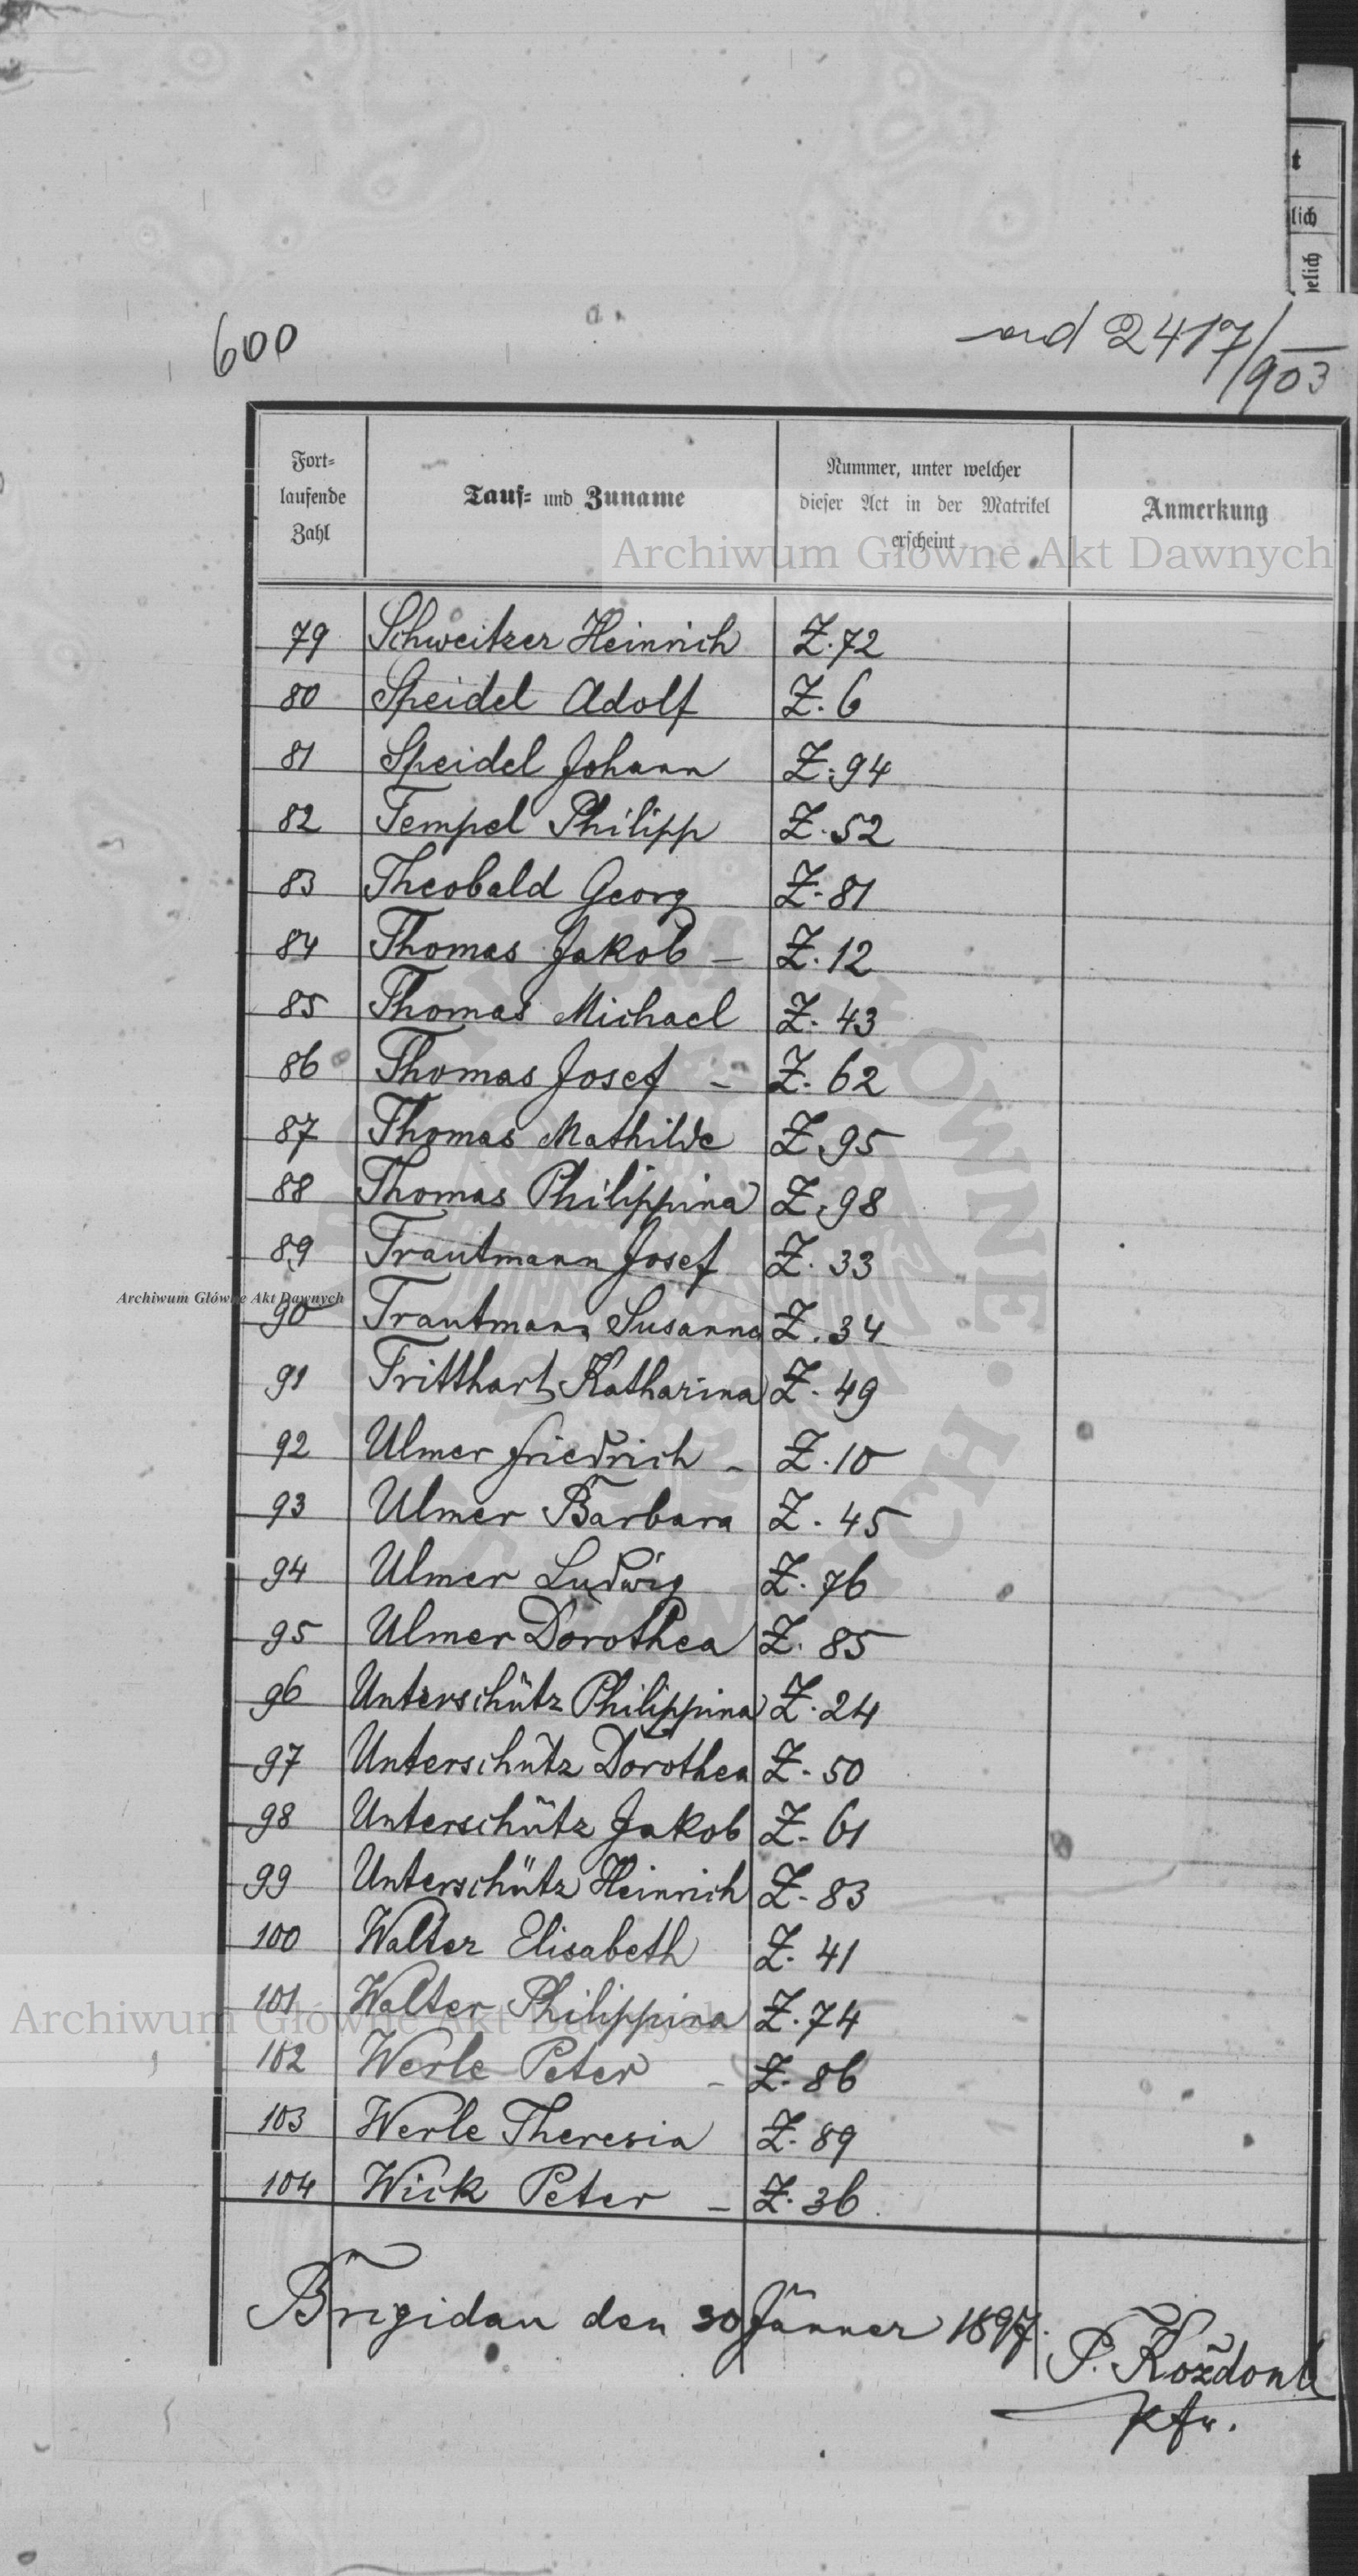 t
lich
elich
600
ad 2417/903
Fort-
laufende
Zahl
Tauf- und Zuname
Nummer, unter welcher
dieser Act in der Matrikel
erscheint
Anmerkung
Archiwum Główne Akt Dawnych
79 Schweitzer Heinrich Z. 72
80 Speidel Adolf Z. 6
81 Speidel Johann Z. 94
82 Tempel Philipp Z. 52
83 Theobald Georg Z. 81
84 Thomas Jakob – Z. 12
85 Thomas Michael Z. 43
86 Thomas Josef – Z. 62
87 Thomas Mathilde Z. 95
88 Thomas Philippina Z. 98
89 Trautmann Josef Z. 33
Archiwum Główne Akt Dawnych
90 Trautmann Susanna Z. 34
91 Tritthart Katharina Z. 49
92 Ulmer Friedrich – Z. 10
93 Ulmer Barbara Z. 45
94 Ulmer Ludwig Z. 76
95 Ulmer Dorothea Z. 85
96 Unterschütz Philippina Z. 24
97 Unterschütz Dorothea Z. 50
98 Unterschütz Jakob Z. 61
99 Unterschütz Heinrich Z. 83
100 Walter Elisabeth Z. 41
101 Walter Philippina Z. 74
Archiwum Główne Akt Dawnych
102 Werle Peter – Z. 86
103 Werle Theresia Z. 89
104 Wick Peter – Z. 36.
Brigidau den 30 Jänner 1897.
P. Koždoň
Pfr.